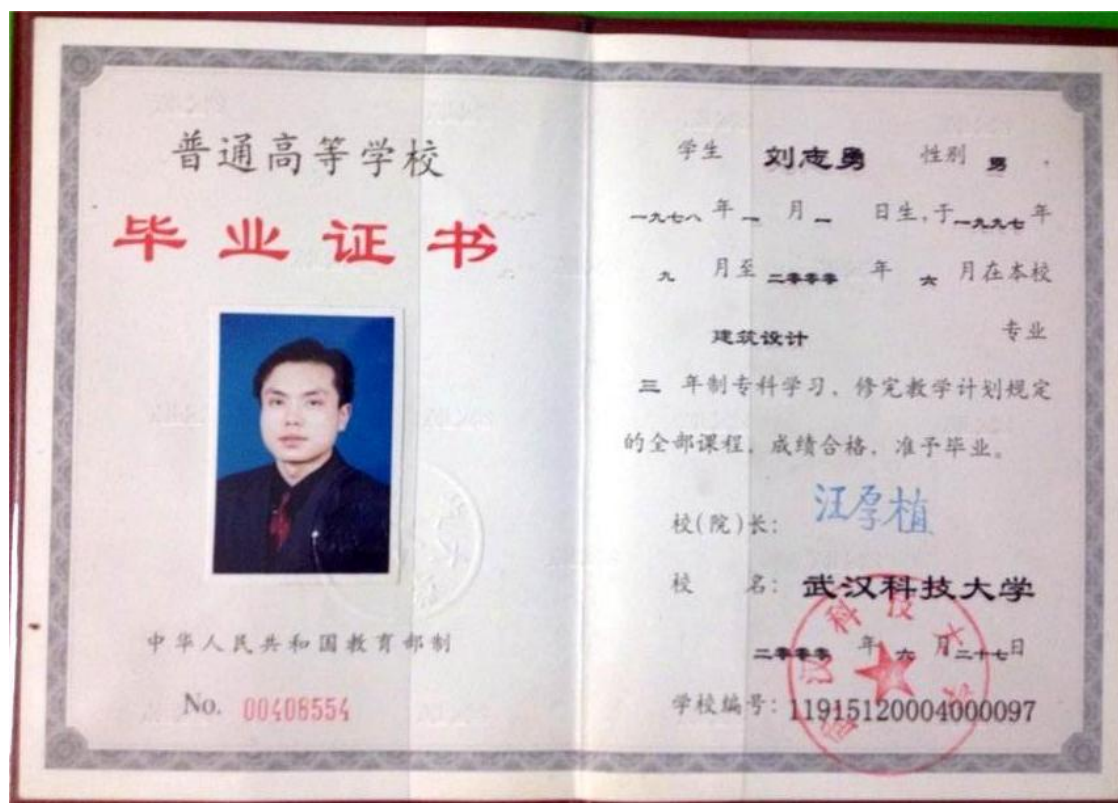 普通高等学校
毕业证书
中华人民共和国教育部制
No. 00408554
学生 刘志勇 性别 男
一九七八 年 一 月 一 日生,于 一九九七 年
九 月至 二零零零 年 六 月在本校
建筑设计 专业
三 年制专科学习,修完教学计划规定
的全部课程,成绩合格,准予毕业。
校(院)长: 汪厚植
校 名: 武汉科技大学
二零零零 年 六 月 二十七 日
学校编号: 11915120004000097